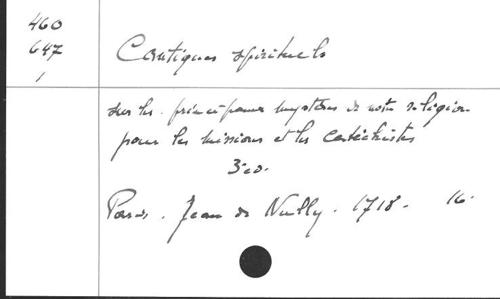 460
647
1
Cantiques spirituels
sur les principaux mystères de notre religion
pour les missions et les catéchistes
3 éd.
Paris. Jean de Nully. 1718. 16.